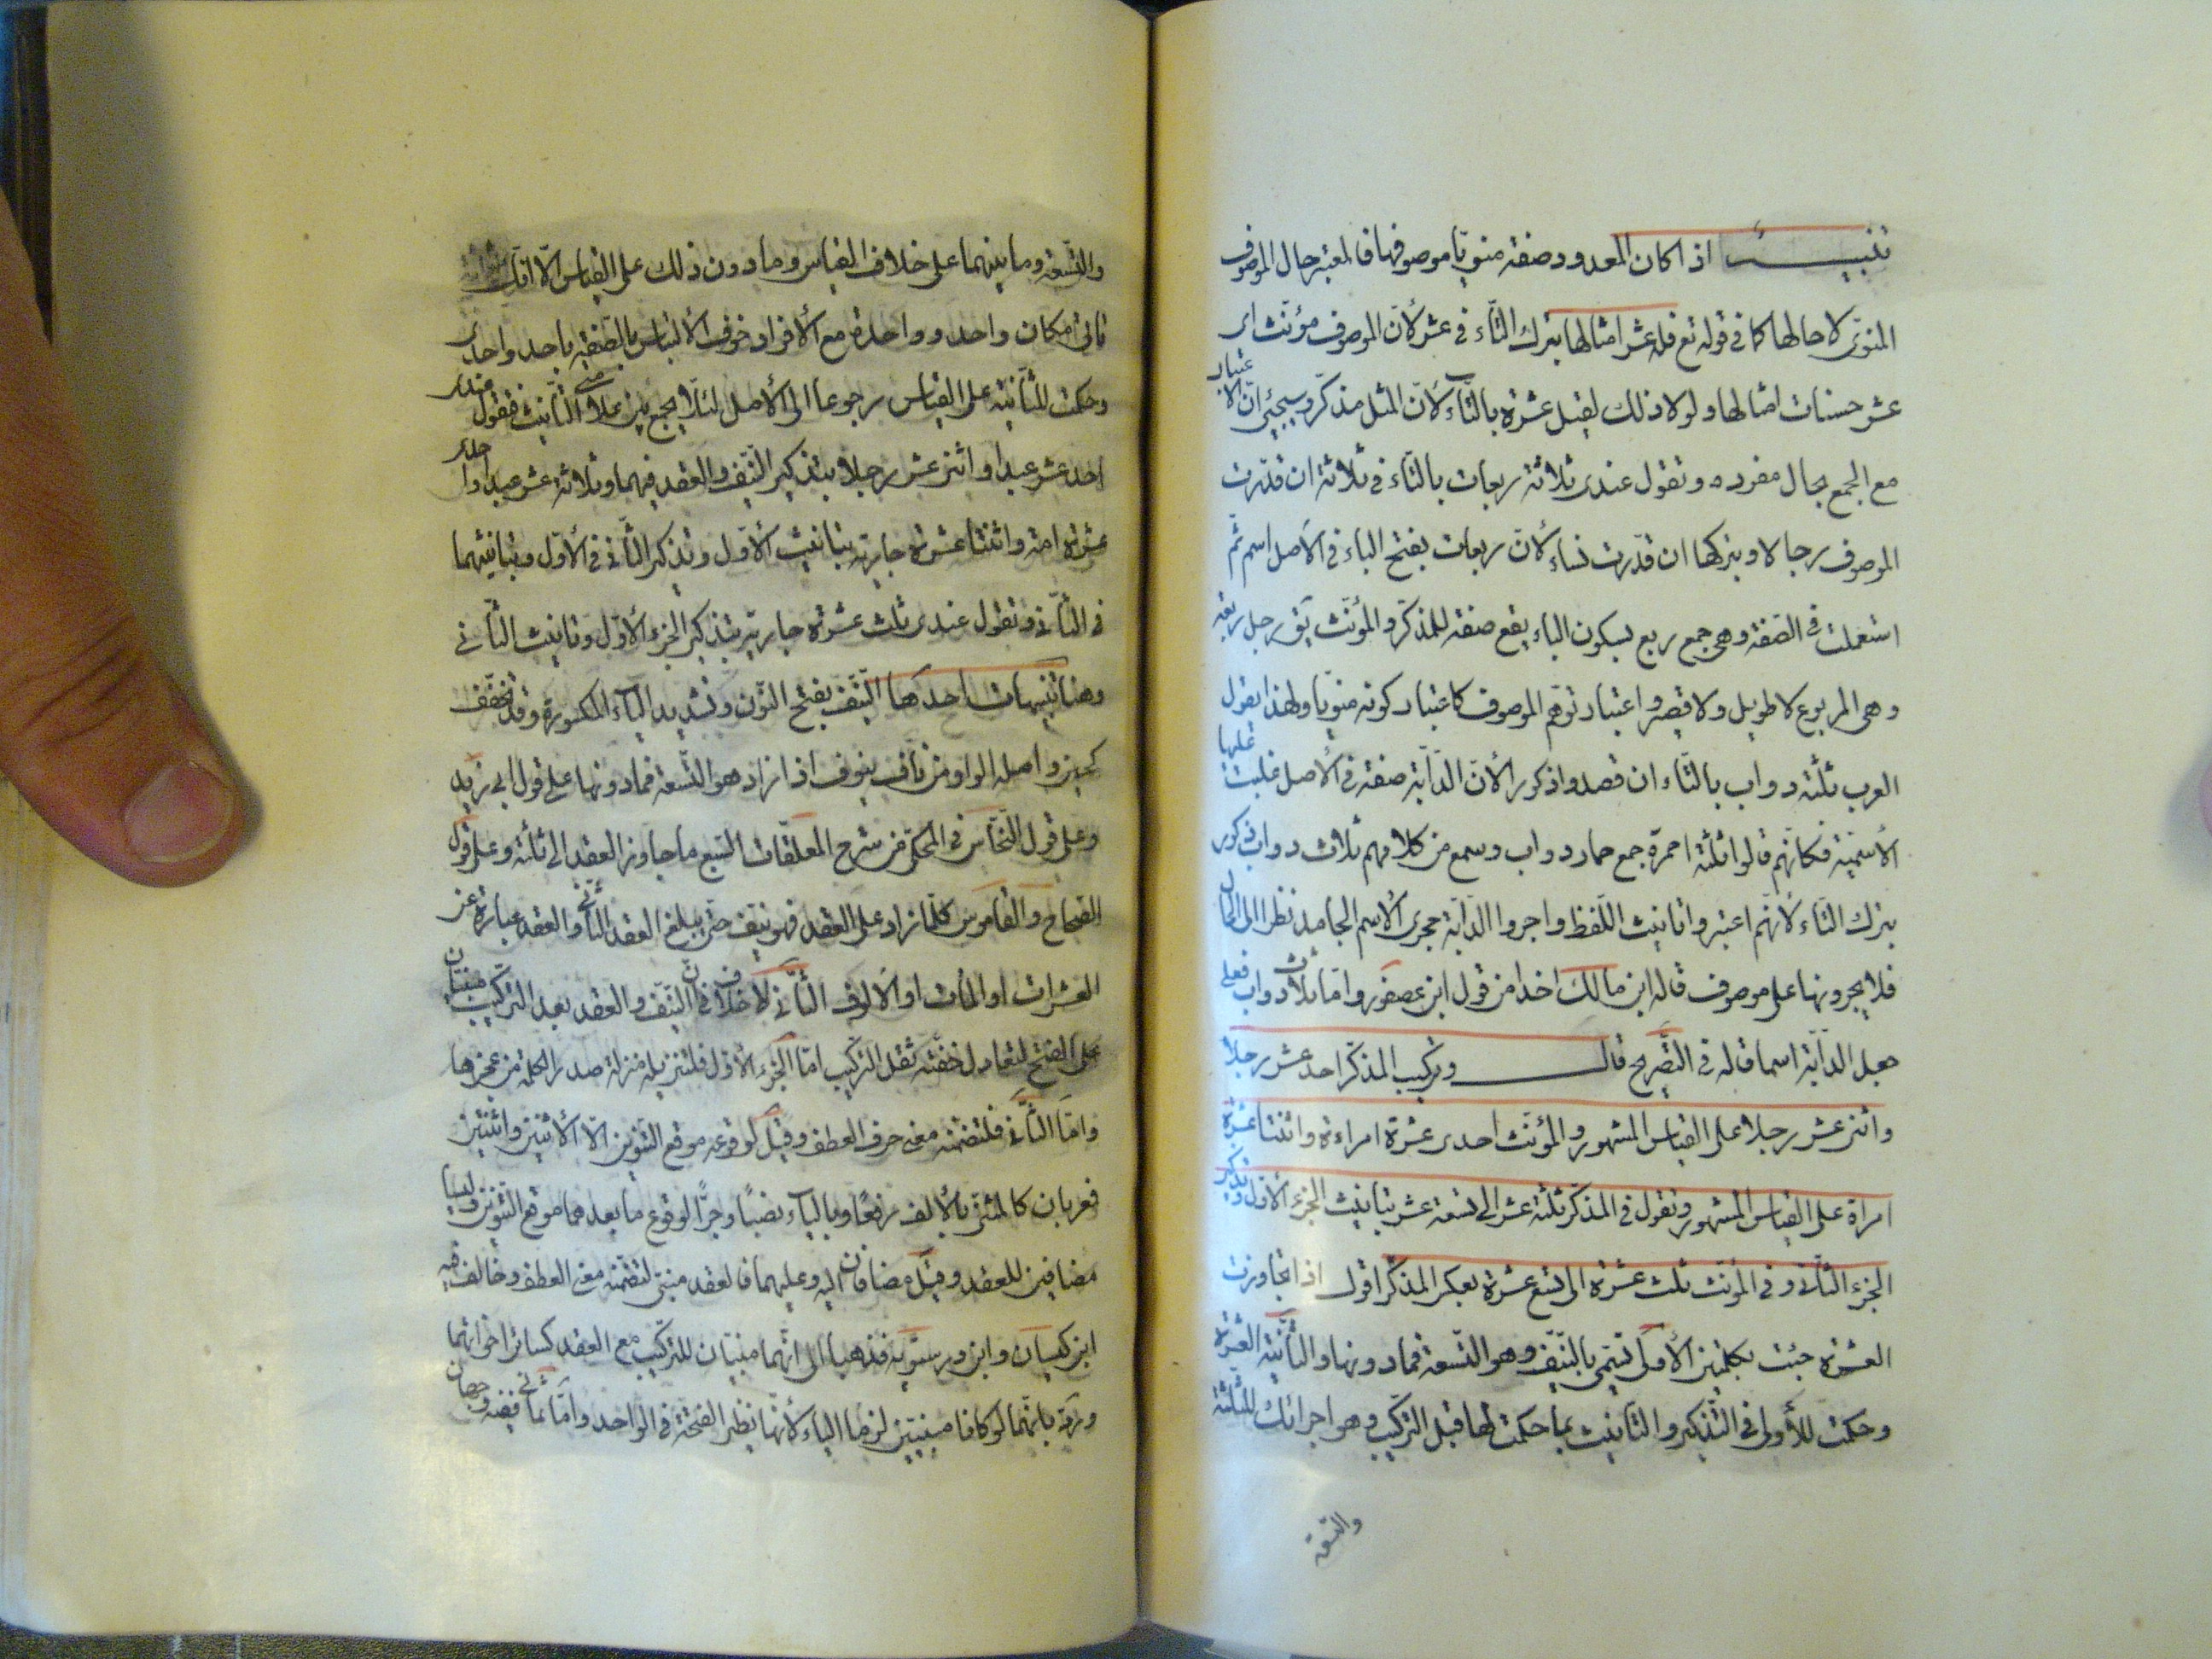 تنبيـــه اذا كان المعدود صفة منويا موصوفها فالمعتبر حال الموصوف
المنوى لا حالها كما فى قوله تع فله عشر امثالها بترك التاء فى عشر لأن الموصوف مؤنث اى
عشر حسنات امثالها ولولا ذلك لقيل عشرة بالتاء لأن المثل مذكر وسيجئ ان الاعتبار
مع الجمع بحال مفرده وتقول عندى ثلاثة ربعات بالتاء فى ثلاثة ان قدرت
الموصوف رجالا وبتركها ان قدرت نساء لأن ربعات بفتح الباء فى الأصل اسم ثم
استعملت فى الصفة وهى جمع ربع بسكون الباء يقع صفة للمذكر والمؤنث يق رجل ربعة
وهى المربوع لا طويل ولا قصير واعتبار توهم الموصوف كاعتبار كونه منويا ولهذا يقول
العرب ثلثة دواب بالتاء ان قصدوا ذكورا لأن الدابة صفة فى الأصل غلبت عليها
الأسمية فكانهم قالوا ثلثة احمرة جمع حمار دواب وسمع من كلامهم ثلاث دواب ذكور
بترك التاء لأنهم اعتبروا تانيث اللفظ واجروا الدابة مجرى الأسم الجامد نظرا الى الحال
فلا يجرونها على موصوف قاله ابن مالك اخذا من قول ابن عصفور واما ثلاث دواب فعلى
جعل الدابة اسما قاله فى التصريح قالـــ وتركيب المذكر احد عشر رجلا
واثنى عشر رجلا على القياس المشهور والمؤنث احدى عشرة امراءة واثنتا عشرة
امراة على القياس المشهور وتقول فى المذكر ثلثة عشر الى تسعة عشر بتانيث الجزء الأول وتذكير
الجزء الثانى وفى المؤنث ثلث عشرة الى تسع عشرة بعكس المذكر اقول اذا تجاوزت
العشرة جئت بكلمتين الأولى تسمى بالنيف وهو التسعة فما دونها والثانية العشرة
وحكمت للأولى فى التذكير والتأنيث بما حكمت لها قبل التركيب وهو اجرائك للثلثة
والتسعة
والتسعة وما بينهما على خلاف القياس وما دون ذلك على القياس الا انك
تاتى مكان واحد وواحدة مع الأفراد خوف الألتباس بالصفة باحد واحدى
وحكمت للثانية على القياس رجوعا الى الأصل لئلا يجمع بين علامتى التأنيث فتقول عندى
احد عشر عبدا واثنى عشر رجلا بتذكير النيف والعقد فيهما وثلاثة عشر عبدا واحدى
عشرة امة واثنتا عشرة جارية بتانيث الأول وتذكير الثانى فى الأول وبتانيثهما
فى الثانى وتقول عندى ثلث عشرة جارية بتذكير الجزء الأول وتانيث الثانى
وهنا تنبيهات احدها النيف بفتح النون وتشديد الياء المكسورة وقد تخفف
كهين واصله الواو من ناف ينوف اذا زاد هو التسعة فما دونها على قول ابى زيد
وعلى قول النحاس فى المحكى من شرح المعلقات السبع ما جاوز العقد الى ثلثة وعلى قول
الصحاح والقاموس كلما زاد على العقد فهو نيف حتى يبلغ العقد الثانى والعقد عبارة عن
العشرات او المأت او الألوف الثانى لا خلاف فى ان النيف والعقد بعد التركيب مبنيان
على الفتح لتعادل خفته ثقل التركيب اما الجزء الأول فلتنزيله منزلة صدر الكلمة من عجزها
واما الثانى فلتضمنه معنى حرف العطف وقيل لوقوعه موقع التنوين الا الأثنين واثنتين
فعربان كالمثنى بالألف رفعا وبالياء نصبا وجرا لوقوع ما بعدهما موقع التنوين وليسا
مضافين للعقد وقيل مضافان اليه وعليهما فالعقد مبنى لتضمنه معنى العطف وخالف فيه
ابن كيسان وابن درستويه فذهبا الى انهما مبنيان للتركيب مع العقد كسائر اخواتهما
ورد بانهما لو كانا مبنيين لزما الياء لأنها نظير الفتحة فى الواحد واما ثمانى ففيه وجهان